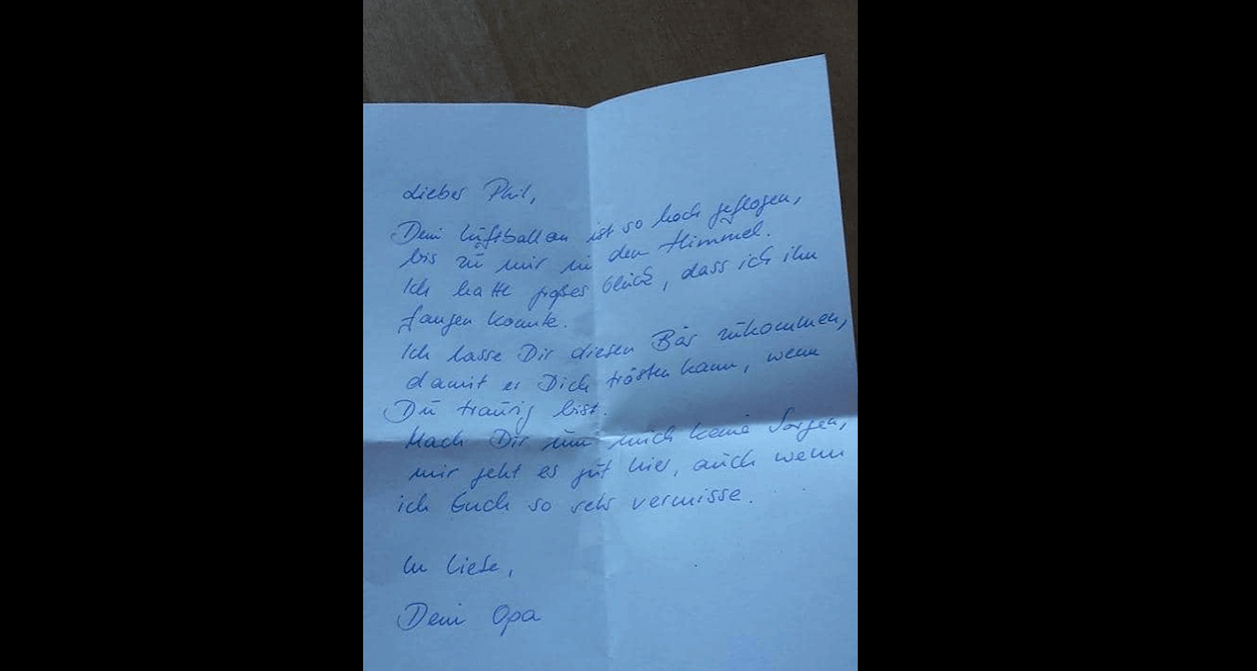 Lieber Phil,
Dein Luftballon ist so hoch geflogen,
bis zu mir in den Himmel.
Ich hatte großes Glück, dass ich ihn
fangen konnte.
Ich lasse Dir diesen Bär zukommen,
damit er Dich trösten kann, wenn
Du traurig bist.
Mach Dir um mich keine Sorgen,
mir geht es gut hier, auch wenn
ich Euch so sehr vermisse.
In Liebe,
Dein Opa